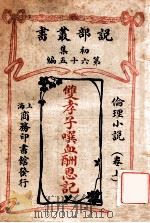 說部叢書
初集
第六十五編
倫理小說
(卷上)
雙孝子噀血酬恩記
上海
商務印書館發行